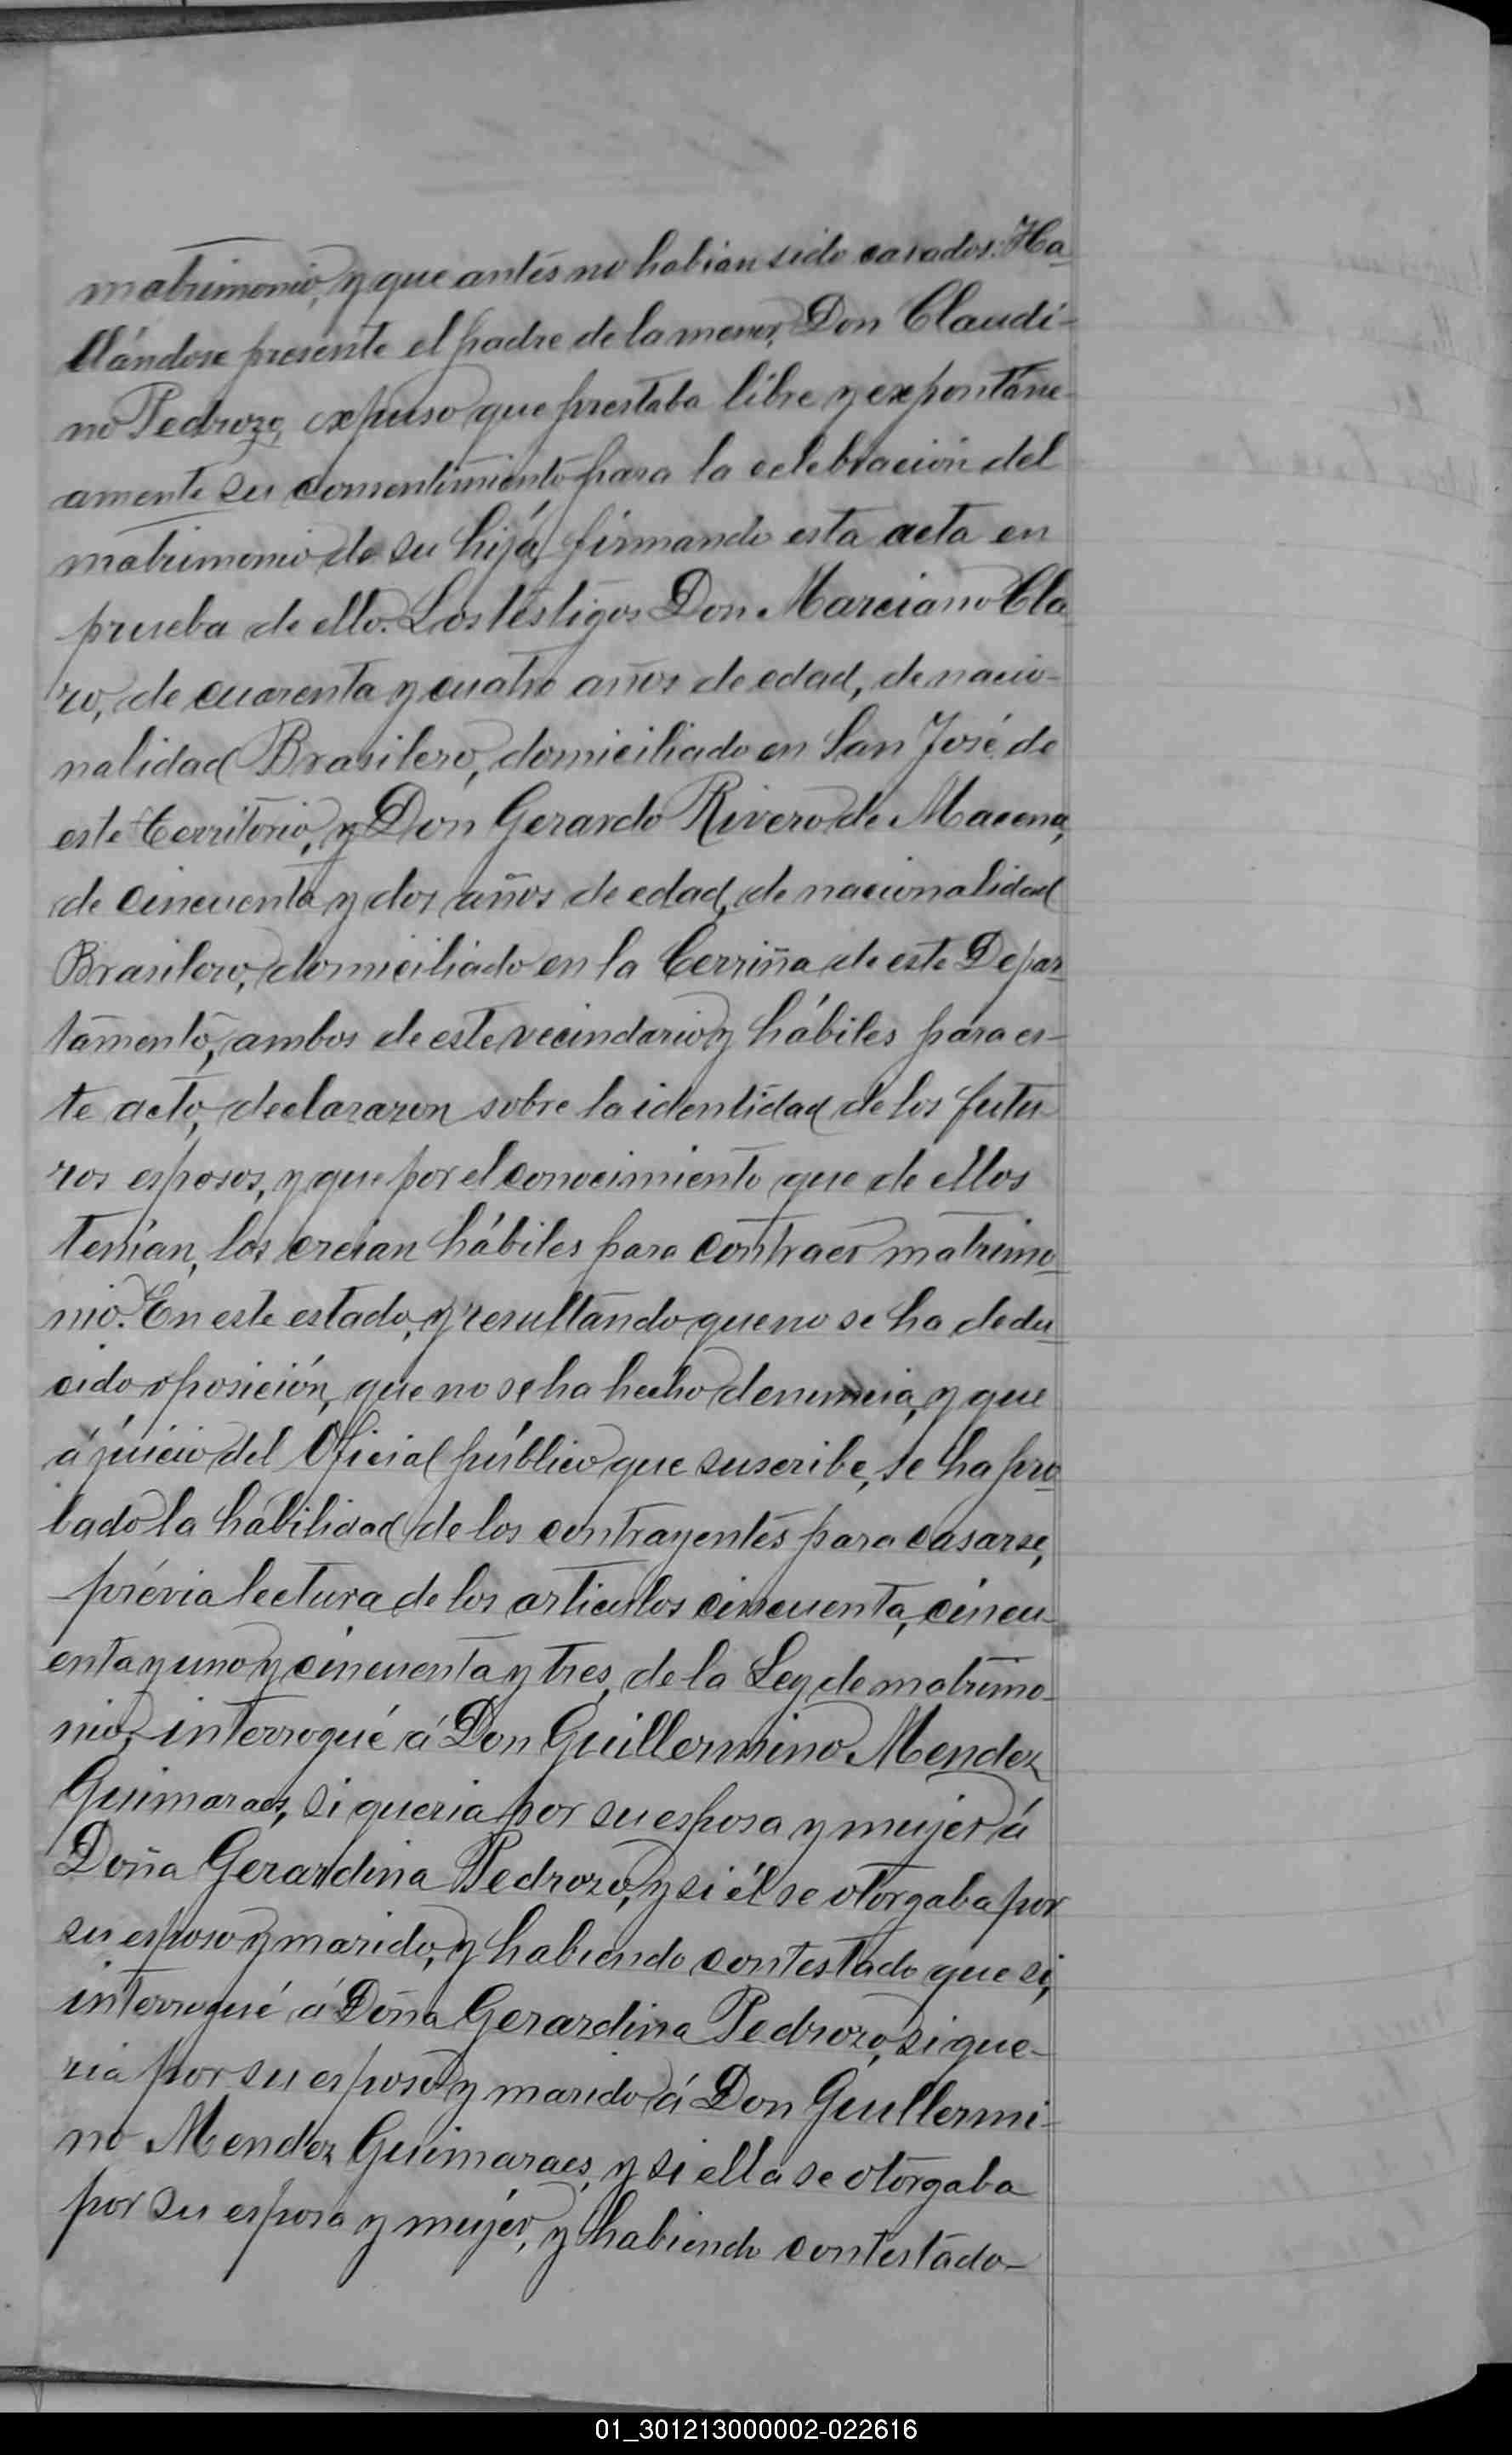 matrimonio, y que antes no habian sido casados. Ha-
llándose presente el padre de la menor, Don Claudi-
no Pedrozo, expuso que prestaba libre y expontáne-
amente su consentimiento para la celebración del
matrimonio de su hija, firmando esta acta en
prueba de ello. Los testigos Don Marciano Cla
ro, de cuarenta y cuatro años de edad, de nacio-
nalidad Brasilero, domiciliado en San José de
este Territorio, y Don Gerardo Rivero de Macena,
de cincuenta y dos años de edad, de nacionalidad
Brasilero, domiciliado en la Cerriña de este Depar-
tamento, ambos de este vecindario y hábiles para es-
te acto, declararon sobre la identidad de los futu-
ros esposos, y que por el conocimiento que de ellos
tenían, los creian hábiles para contraer matrimo-
nio. En este estado, y resultando que no se ha dedu-
cido oposición, que no se ha hecho denuncia, y que
á juicio del Oficial público que suscribe, se ha pro-
bado la habilidad de los contrayentes para casarse,
prévia lectura de los articulos cincuenta, cincu-
enta y uno y cincuenta y tres, de la Ley de matrimo-
nio, interrogué á Don Guillermino Mendez
Guimaraes, si queria por su esposa y mujer á
Doña Gerardina Pedrozo, y si él se otorgaba por
su esposo y marido, y habiendo contestado que si,
interrogué á Doña Gerardina Pedrozo, si que-
ria por su esposo y marido á Don Guillermi-
no Mendez Guimaraes, y si ella se otorgaba
por su esposa y mujer, y habiendo contestado-
01_301213000002-022616